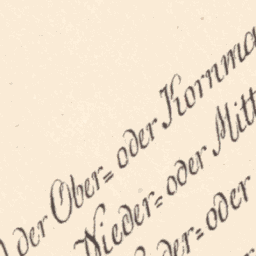 der Ober= oder Kornma
Nieder= oder Mitt
der= oder